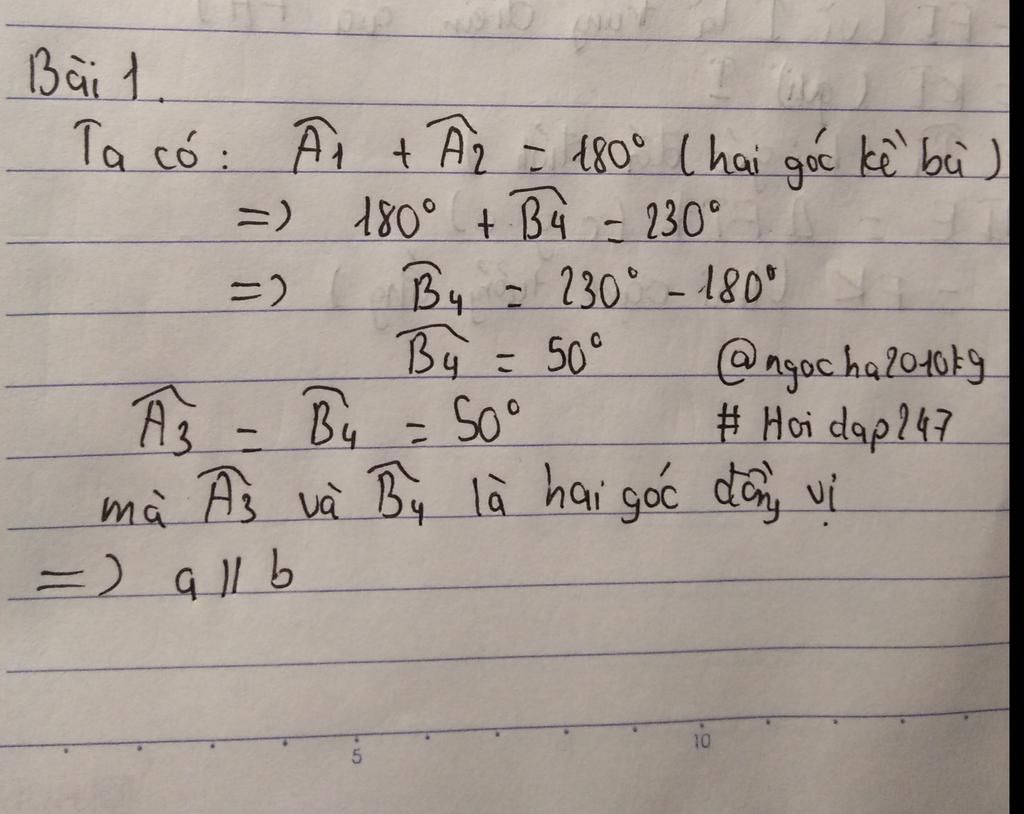 Bài 1.
Ta có: Â1 + Â2 = 180° (hai góc kề bù)
=> 180° + B̂4 = 230°
=> B̂4 = 230° - 180°
B̂4 = 50° @ngocha2010kg
Â3 = B̂4 = 50° # Hoidap247
mà Â3 và B̂4 là hai góc đồng vị
=> a // b
5 10